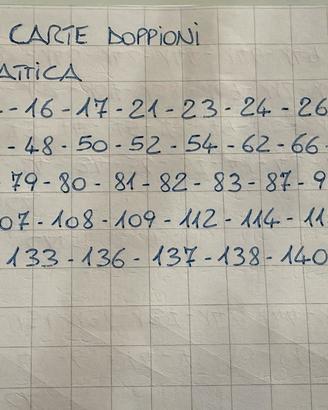 CARTE DOPPIONI
ATTICA
- 16 - 17 - 21 - 23 - 24 - 26
- 48 - 50 - 52 - 54 - 62 - 66 -
79 - 80 - 81 - 82 - 83 - 87 - 9
07 - 108 - 109 - 112 - 114 - 11
133 - 136 - 137 - 138 - 140